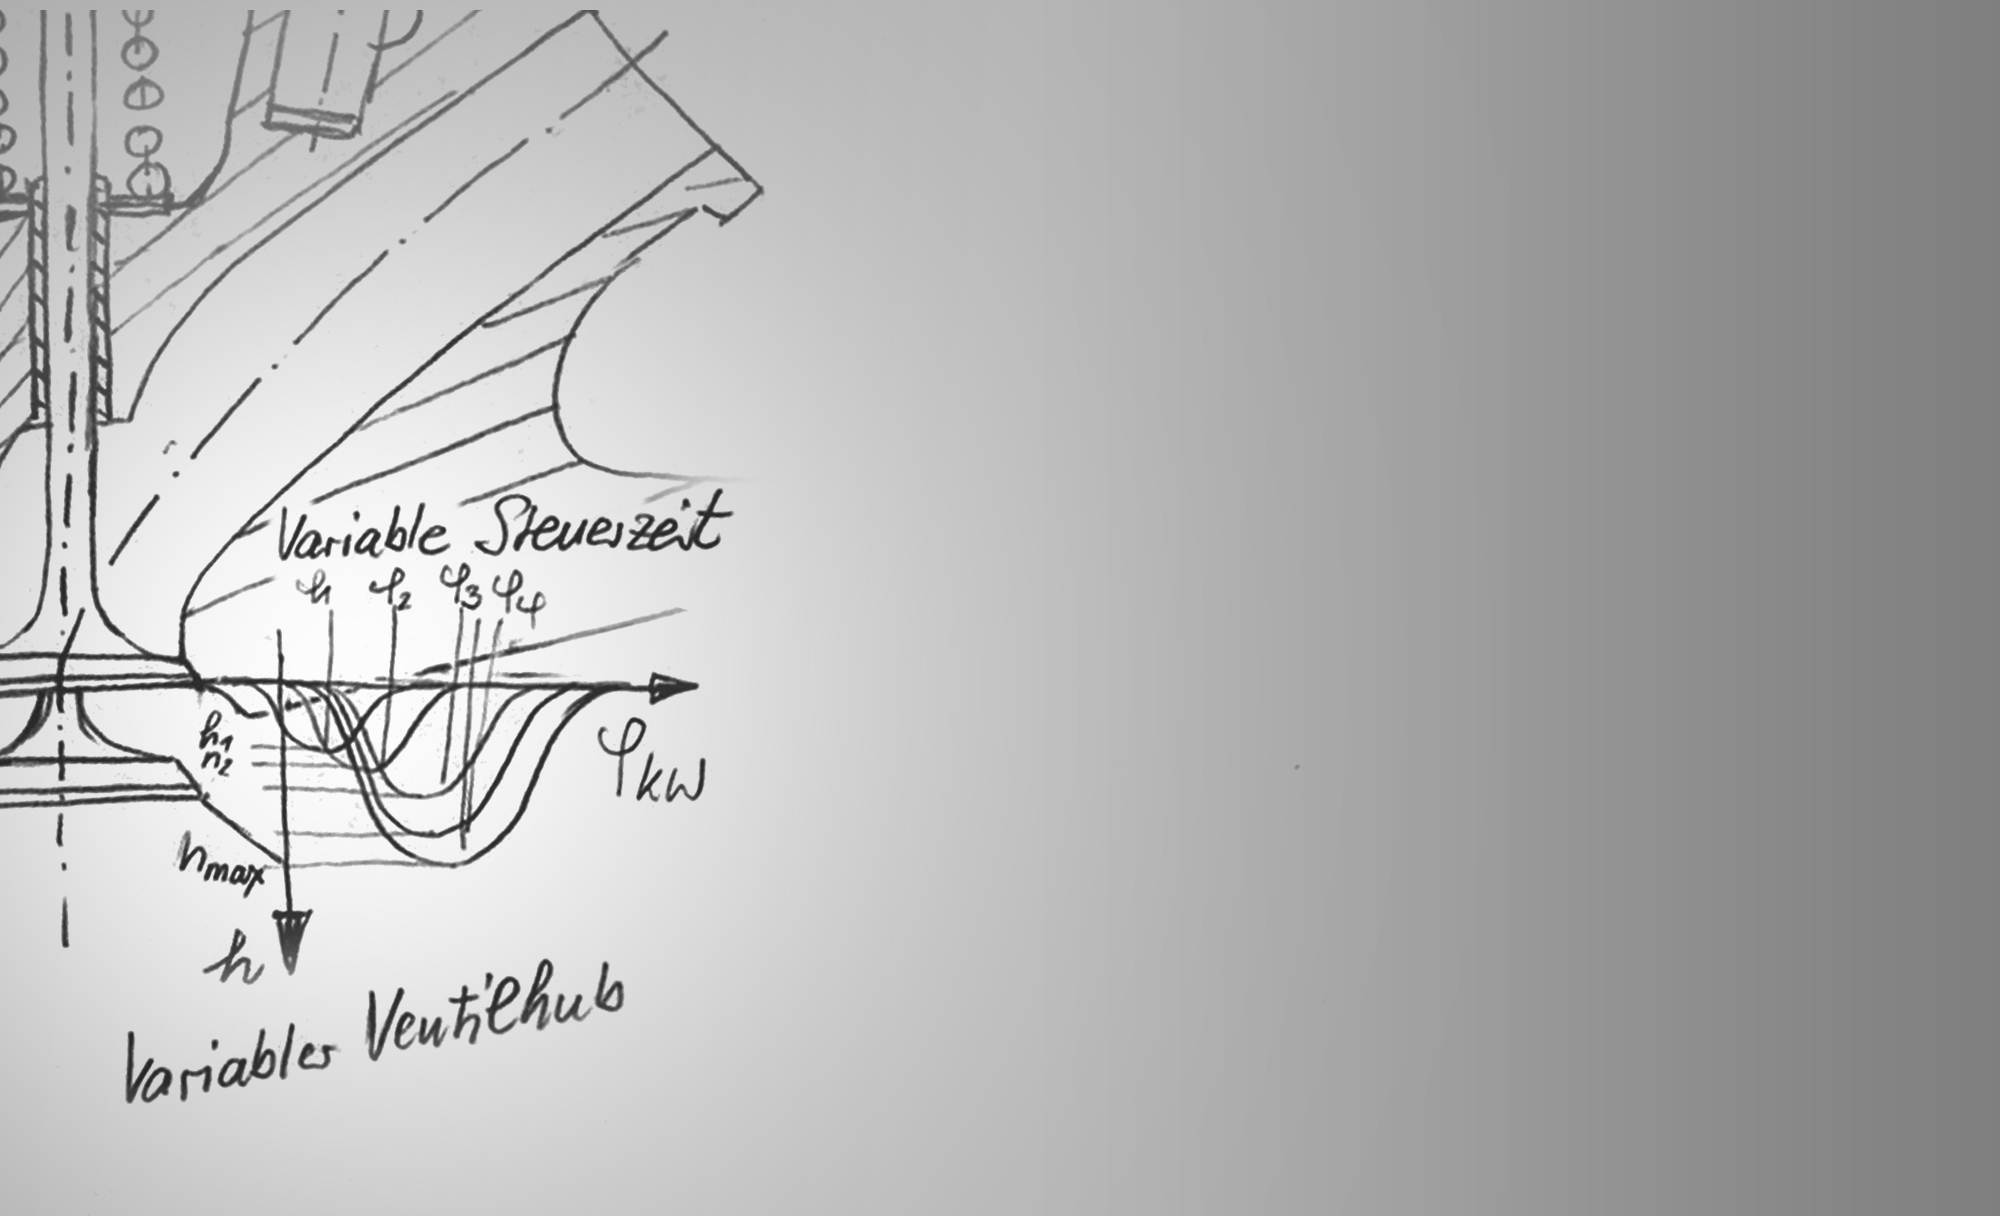 Variable Steuerzeit
φ1 φ2 φ3 φ4
h1
h2
φKW
hmax
h
Variabler Ventilhub